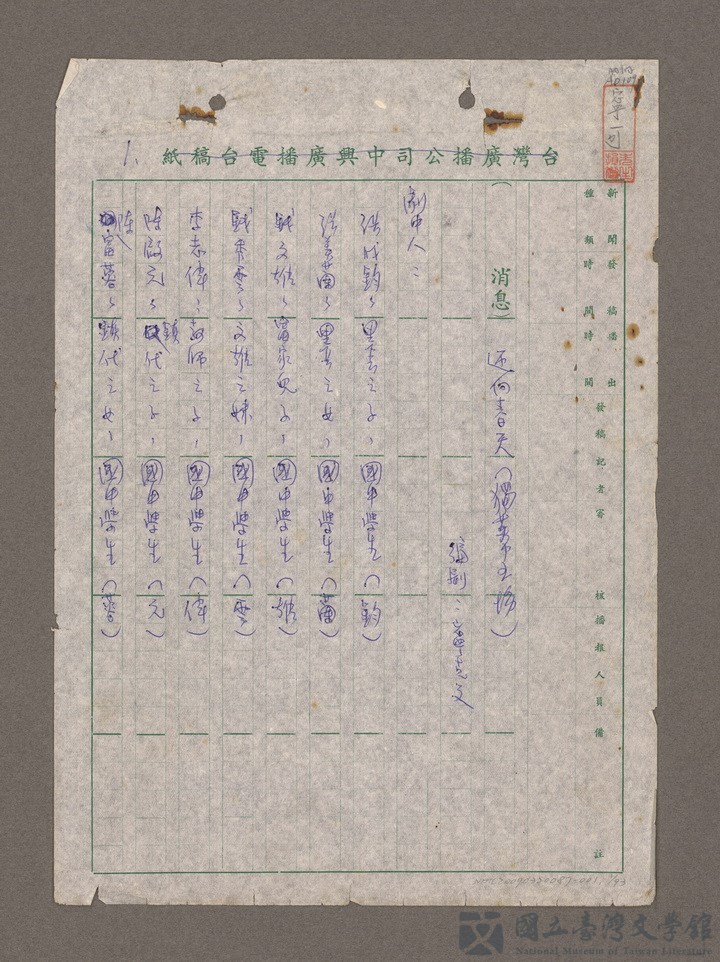 台灣廣播公司中興廣播電台稿紙
1.
新聞發稿播出
種類時間時間
發稿記者審
核播報人員備註
（消息） 迎向春天（獨幕
編劇：
劇中人：
張成鈞、里長之子，國中學生（鈞）
張美茵、里長之女，國中學生（茵）
錢文雄、富家兒子，國中學生（雄）
錢秀雲、文雄之妹，國中學生（雲）
李志偉、教師之子，國中學生（偉）
陳啟元、鎮代之子，國中學生（元）
陳富蓉、鎮代之女，國中學生（蓉）
國立臺灣文學館
National Museum of Taiwan Literature